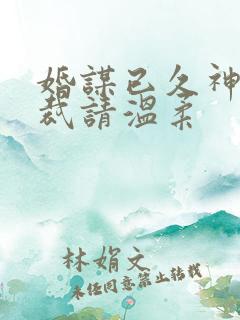 婚謀已久神
裁請溫柔
林娟文
未任同意禁止转载